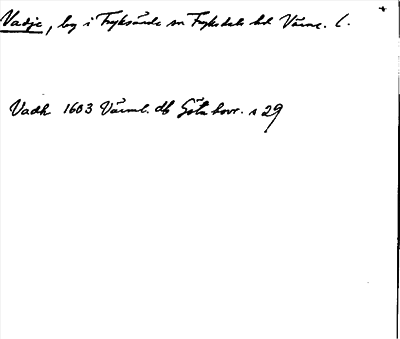 Vadje, by i Fryksände sn Fryksdals hd Värml. l. +
Vadh 1603 Värml. db Göta hovr. s 29